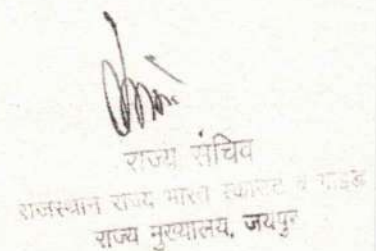 राज्य सचिव
राजस्थान राज्य भारत स्काउट व गाइड
राज्य मुख्यालय, जयपुर